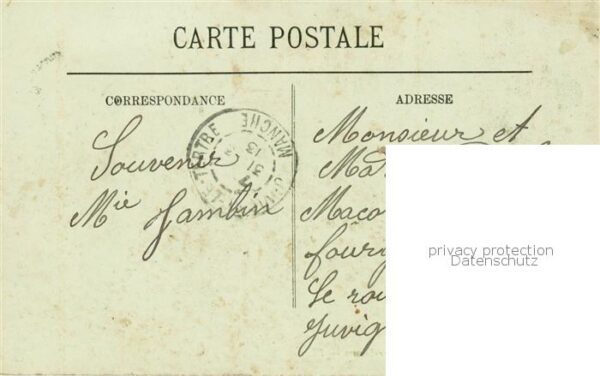 CARTE POSTALE
CORRESPONDANCE
ADRESSE
Souvenir
Mie Jambin
LE-TERTRE
MANCHE
31
13
Monsieur et
Ma
Maco
Le rou
Juvig
privacy protection
Datenschutz